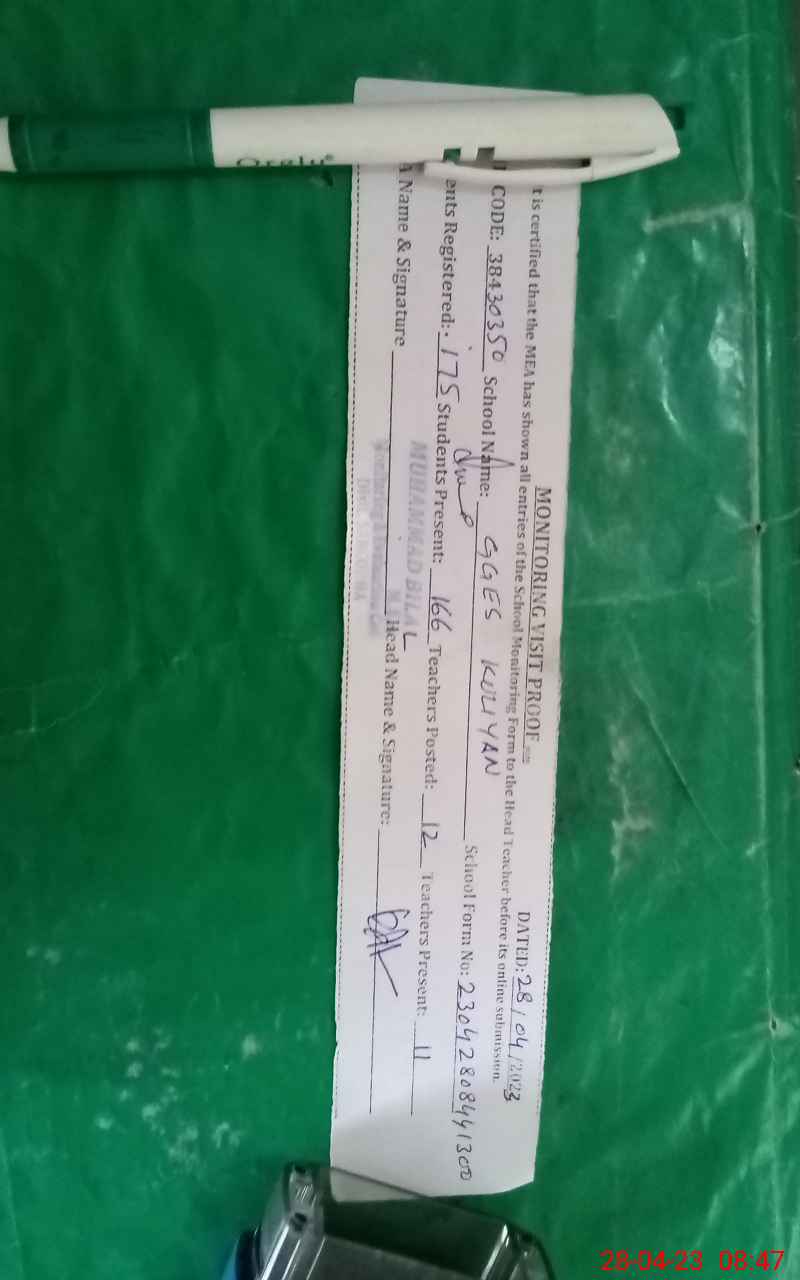 MONITORING VISIT PROOF
DATED: 28/04/2023
t is certified that the MEA has shown all entries of the School Monitoring Form to the Head Teacher before its online submission.
CODE: 38430350 School Name: GGES KULIYAN School Form No: 23042808441300
ents Registered: 175 Students Present: 166 Teachers Posted: 12 Teachers Present: 11
A Name & Signature Head Name & Signature:
MUHAMMAD BILAL
Monitoring & Evaluation
28-04-23 08:47